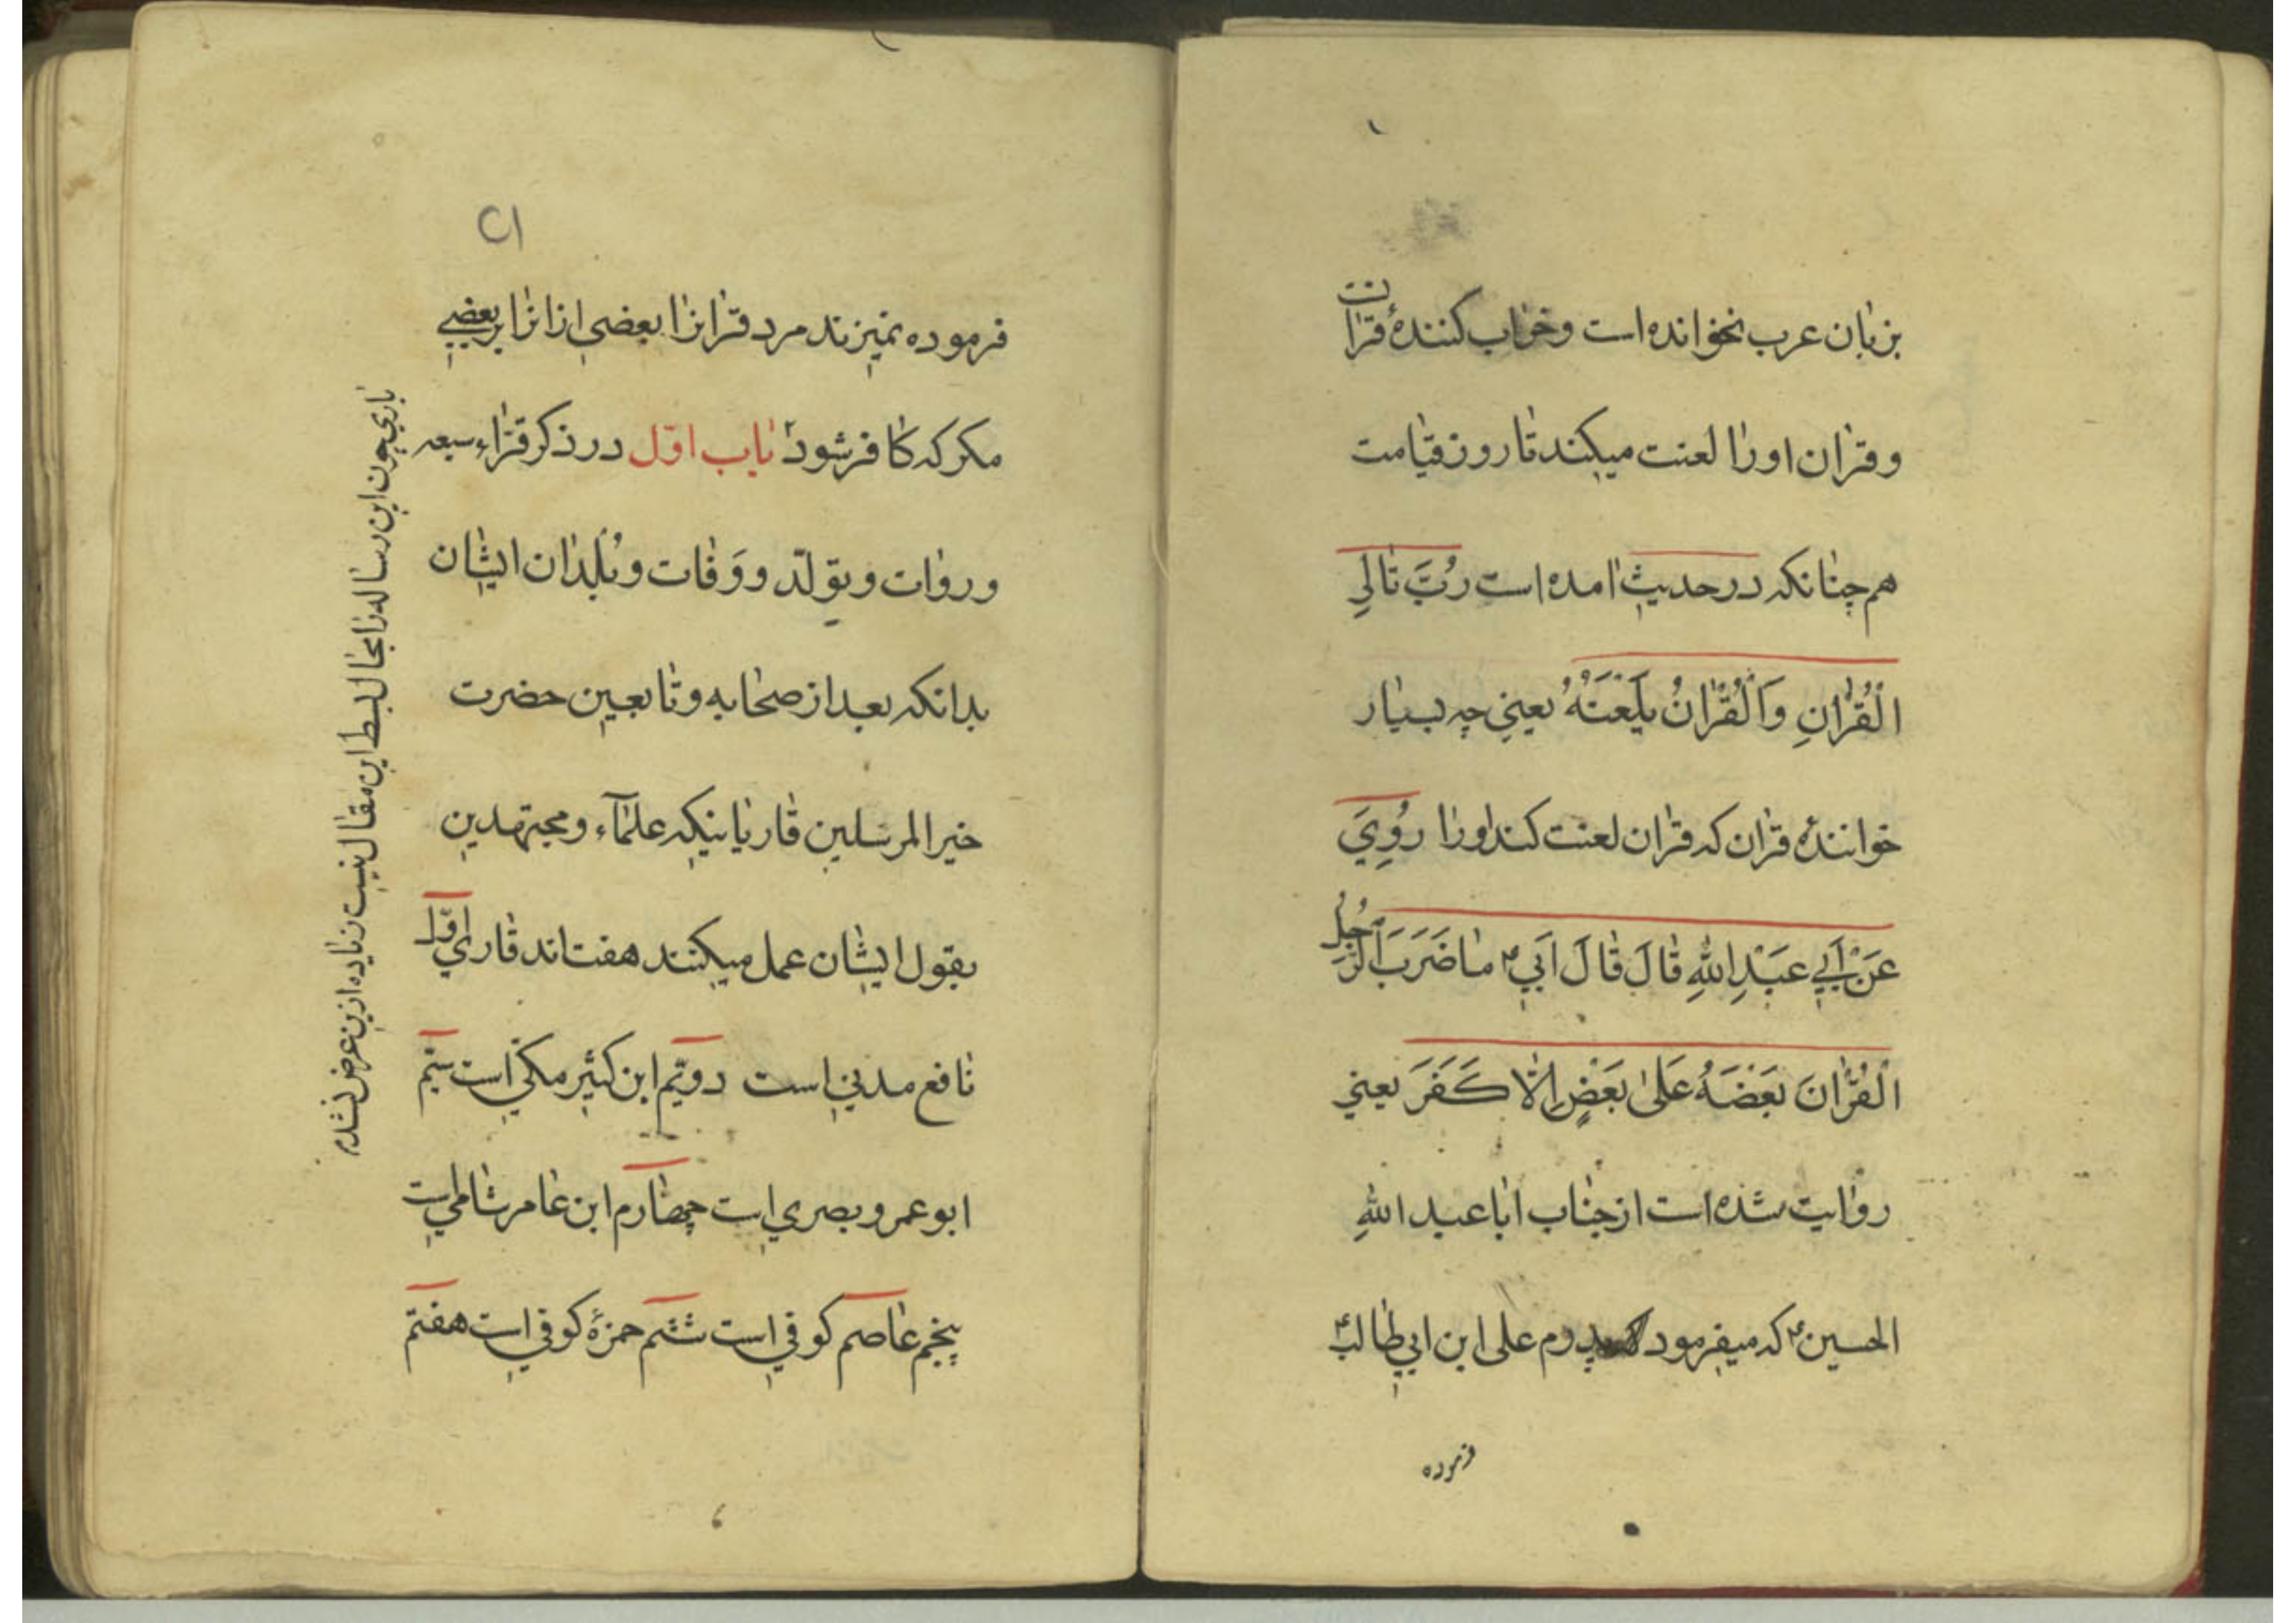 بزبان عرب نخوانده است وخراب كنندهٔ قرآن است
وقران اورا لعنت ميكند تا روز قيامت
هم چنانكه در حديث امده است رُبَّ تالِي
الْقُرْانِ وَالْقُرْانُ يَلْعَنُهُ يعني چه بسيار
خوانندهٔ قران كه قران لعنت كند اورا رُوِيَ
عَنْ اَبي عَبْدِ اللهِ قالَ قالَ اَبي ع ما ضَرَبَ الرَّجُلُ
الْقُرْانَ بَعْضَهُ عَلىٰ بَعْضٍ اِلّا كَفَرَ يعني
روايت شده است از جناب ابا عبد اللهِ
الحسين ع كه ميفرمود پدرم على ابن ابي طالب ع
فرموده
٢١
فرموده نميزند مرد قرانرا بعضى از انرا بر بعضي
مكر كه كافر شود باب اوّل در ذكر قرّاء سبعه
وروات وتولّد ووَفات وبُلدان ايشان
بدانكه بعد از صحابه وتابعين حضرت
خير المرسلين قاريانيكه علمآء ومجتهدين
بقول ايشان عمل ميكنند هفت اند قاري اوّل
نافع مدني است دويّم ابن كثير مكّي است سيّم
ابو عمرو بصري است چهارم ابن عامر شامي است
پنجم عاصم كوفي است ششم حمزهٔ كوفي است هفتم
باري چون اين رساله را مجال بسط اين مقال نيست زياده ازين عرض نشده